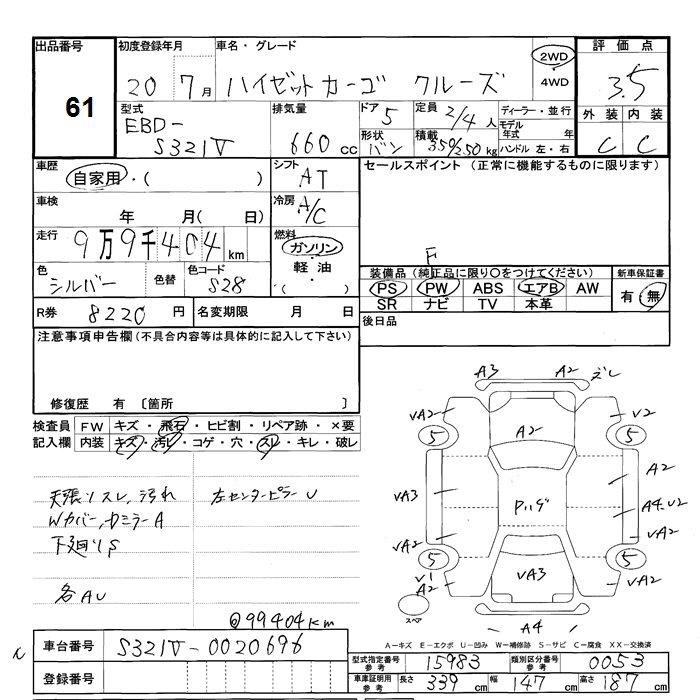 出品番号 61
初度登録年月 20 7月
車名・グレード ハイゼットカーゴ クルーズ
2WD ・ 4WD
評価点 3.5
外装 内装
C C
型式 EBD-S321V
排気量 660 cc
ドア 5
形状 バン
定員 2/4 人
積載 350/250 kg
ディーラー・並行
モデル年式 年
ハンドル 左・右
車歴 自家用・( )
シフト AT
セールスポイント (正常に機能するものに限ります)
車検 年 月( 日)
冷房 A/C
走行 9万9千404 km
燃料 ガソリン・軽油・( )
色 シルバー 色替
色コード S28
装備品 (純正品に限り○をつけてください)
新車保証書
PS PW ABS エアB AW
SR ナビ TV 本革
有・無
R券 8220 円
名変期限 月 日
後日品
注意事項申告欄 (不具合内容等は具体的に記入して下さい)
修復歴 有 〔箇所 〕
検査員記入欄
FW キズ・飛石・ヒビ割・リペア跡・×要
内装 キズ・汚レ・コゲ・穴・スレ・キレ・破レ
天張リスレ、汚れ
左センターピラーU
WカバーA
下廻リS
各AU
@99404km
A3 A2 ズレ
VA2 V2
5 5
A2
A2
VA3 A4.U2
VA2 VA2
5 5
V1 A2 VA3 VA2
スペア
A4
A-キズ E-エクボ U-凹み W-補修跡 S-サビ C-腐食 XX-交換済
車台番号 S321V-0020696
登録番号
型式指定番号参考 15983
類別区分番号参考 0053
車庫証明用参考 長さ 339 cm 幅 147 cm 高さ 187 cm